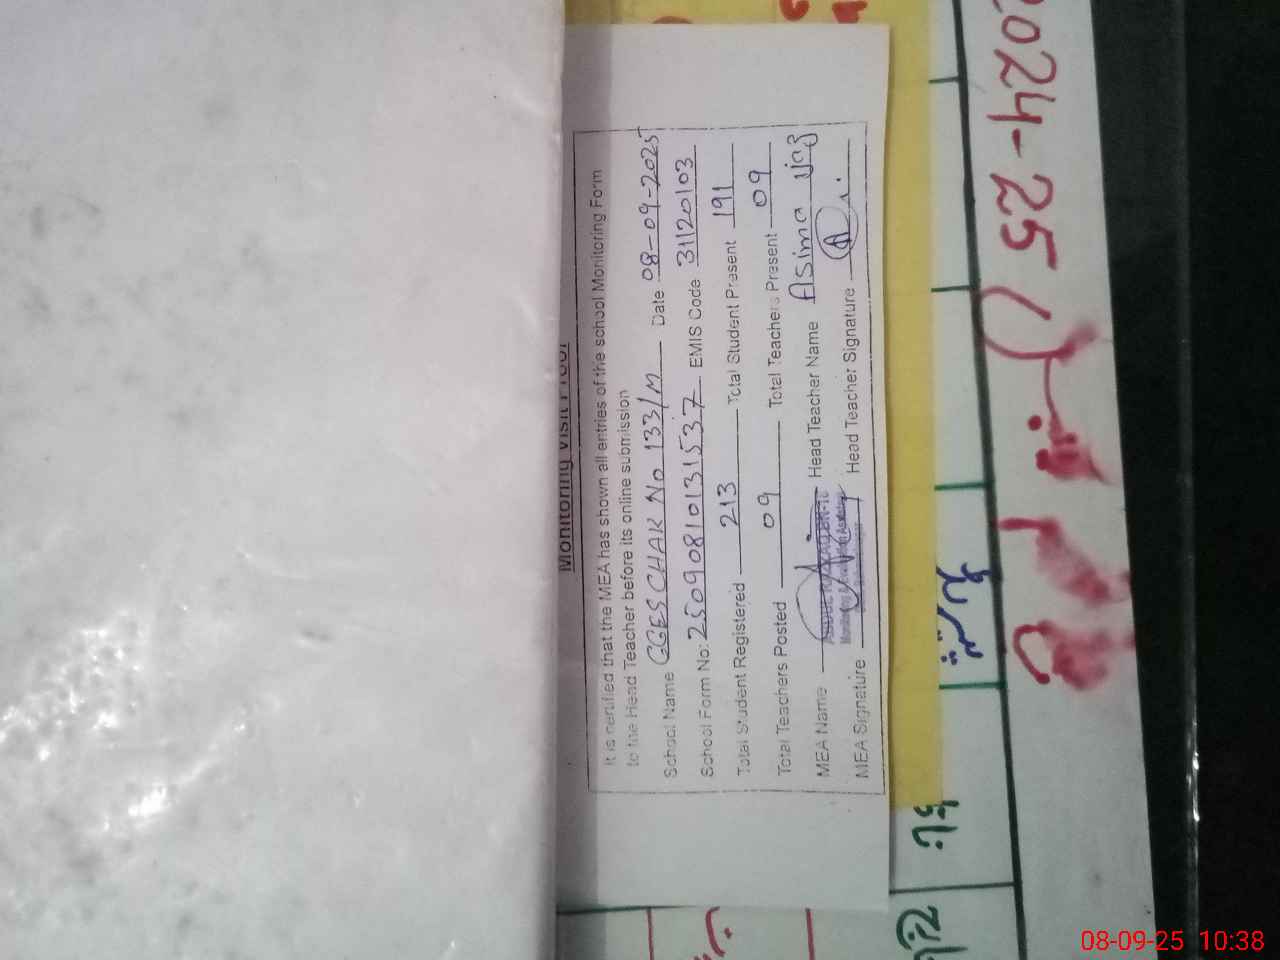 Monitoring Visit Proof
It is certified that the MEA has shown all entries of the school Monitoring Form
to the Head Teacher before its online submission
School Name GGES CHAK No 133/M Date 08-09-2025
School Form No: 25090810131537 EMIS Code 31120103
Total Student Registered 213 Total Student Present 191
Total Teachers Posted 09 Total Teachers Present 09
MEA Name Head Teacher Name Asima
MEA Signature Head Teacher Signature
2024-25
08-09-25 10:38